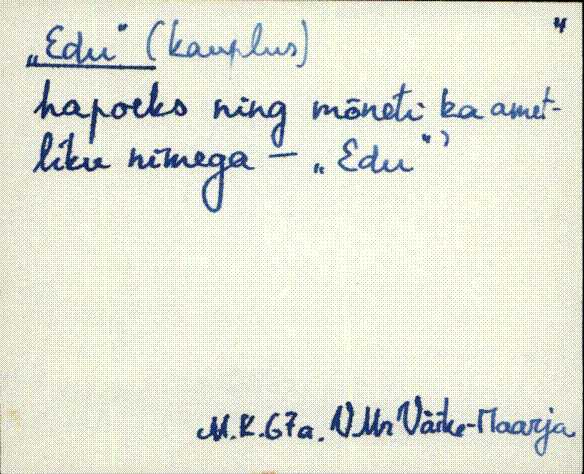 4
„Edu" (kauplus)
hapoeks ning mõneti ka amet-
liku nimega — „Edu")
M.K. 67a. V.Mr Väike-Maarja